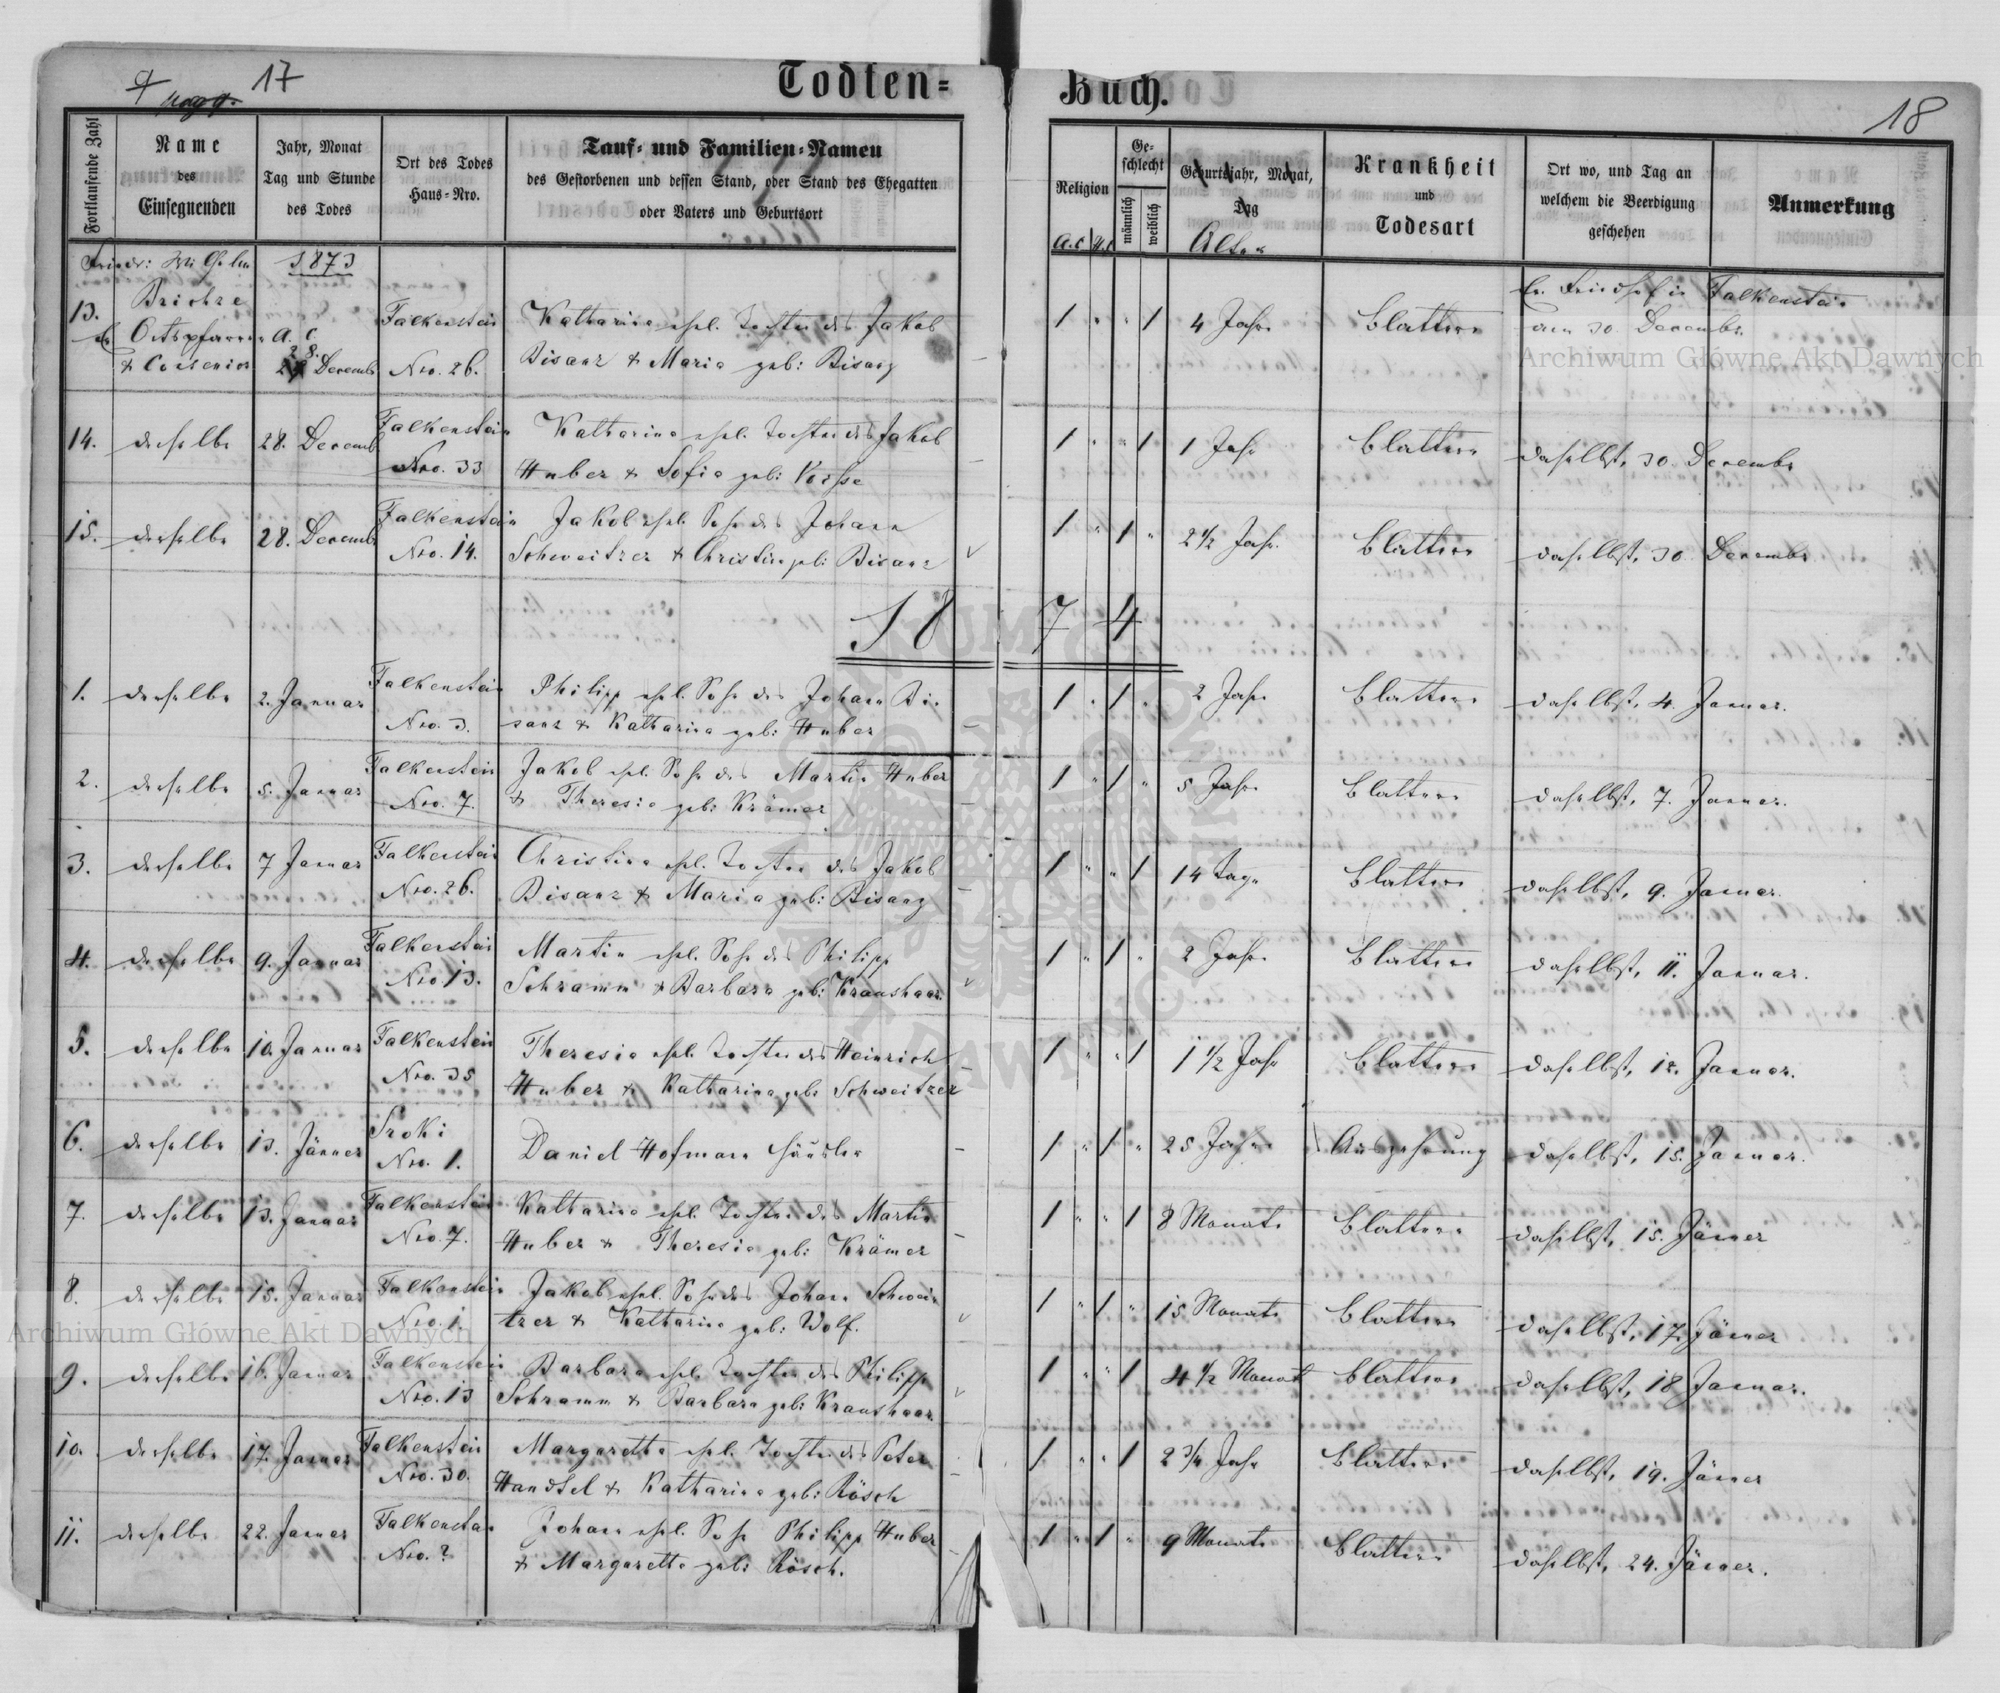 17
Todten-
Buch.
18
Fortlaufende Zahl
Name
des
Einsegnenden
Jahr, Monat
Tag und Stunde
des Todes
Ort des Todes
Haus-Nro.
Tauf- und Familien-Namen
des Gestorbenen und dessen Stand, oder Stand des Ehegatten
oder Vaters und Geburtsort
Religion
A.C.
H.C.
Ge-
schlecht
männlich
weiblich
Geburtsjahr, Monat,
Tag
Alter
Krankheit
und
Todesart
Ort wo, und Tag an
welchem die Beerdigung
geschehen
Anmerkung
1873
13. Falkenstein Katharina ehel. Tochter des Jakob 1 " " 1 4 Jahre Blattern Ev. Friedhof in Falkenstein
Ortspfarrer A. C. am 30 Decembr.
& Consenior 28. Decemb Nro. 26. Bisanz & Maria geb: Bisanz
14. derselbe 28. Decemb Falkenstein Katharina ehel. Tochter des Jakob 1 " " 1 1 Jahr Blattern daselbst, 30. Decembr
Nro. 33 Huber & Sofia geb:
15. derselbe 28. Decemb Falkenstein Jakob ehel. Sohn des Johann 1 " 1 " 2 1/2 Jahr. Blattern daselbst, 30 Decembr
Nro. 14. Schweitzer & Christine geb: Bisanz
1874
1. derselbe 2. Januar Falkenstein Philipp ehel. Sohn des Johann Bi- 1 " 1 " 2 Jahre Blattern daselbst, 4. Januar.
Nro. 3. sanz & Katharina geb: Huber
2. derselbe 5. Januar Falkenstein Jakob ehel. Sohn des Martin Huber 1 " 1 " 5 Jahre Blattern daselbst, 7. Januar.
Nro. 7. & Theresia geb: Krämer
3. derselbe 7 Januar Falkenstein Christina ehel. Tochter des Jakob 1 " " 1 14 Tage Blattern daselbst, 9. Januar.
Nro. 26. Bisanz & Maria geb: Bisanz
4. derselbe 9. Januar Falkenstein Martin ehel. Sohn des Philipp 1 " 1 " 2 Jahre Blattern daselbst, 11. Januar.
Nro 13. Schramm & Barbara geb: Kraushaar
5. derselbe 10. Januar Falkenstein Theresia ehel. Tochter des Heinrich 1 " " 1 1 1/2 Jahr Blattern daselbst, 12. Januar.
Nro. 35 Huber & Katharina geb: Schweitzer
6. derselbe 13. Jänner Sroki Daniel Hofmann Häusler 1 " 1 " 25 Jahre Auszehrung daselbst, 15. Januar.
Nro. 1.
7. derselbe 13. Januar Falkenstein Katharina ehel. Tochter des Martin 1 " " 1 8 Monate Blattern daselbst, 15. Jänner
Nro. 7. Huber & Theresia geb: Krämer
8. derselbe 15. Januar Falkenstein Jakob ehel. Sohn des Johann Schwei- 1 " 1 " 15 Monate Blattern daselbst, 17. Jänner
Nro. 1. tzer & Katharina geb: Wolf.
9. derselbe 16. Januar Falkenstein Barbara ehel. Tochter des Philipp 1 " " 1 4 1/2 Monat Blattern daselbst, 18 Januar.
Nro. 13 Schramm & Barbara geb: Kraushaar
10. derselbe 17. Januar Falkenstein Margaretha ehel. Tochter des Peter 1 " " 1 2 3/4 Jahr Blattern daselbst, 19. Jänner
Nro. 30. Handtel & Katharina geb: Rösch
11. derselbe 22. Januar Falkenstein Johann ehel. Sohn Philipp Huber 1 " 1 " 9 Monate Blattern daselbst, 24. Jänner.
Nro. ? & Margaretha geb: Rösch.
Archiwum Główne Akt Dawnych
Archiwum Główne Akt Dawnych